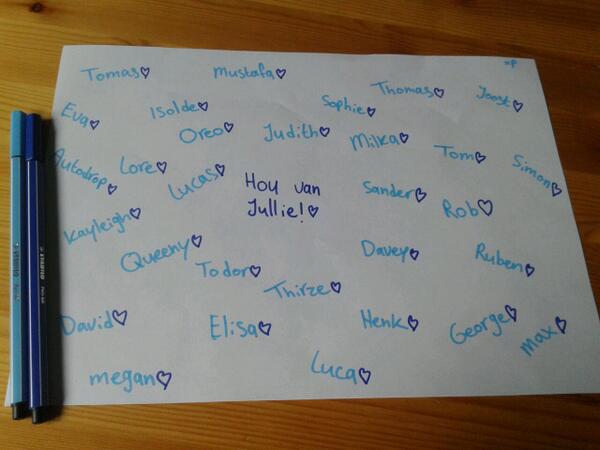 =P
Tomas♡
Mustafa♡
Thomas♡
Joost♡
Eva♡
Isolde♡
Sophie♡
Oreo♡
Judith♡
Milka♡
Tom♡
Simon♡
Autodrop♡
Lore♡
Lucas♡
Hou van
Jullie!♡
Sander♡
Rob♡
Kayleigh♡
Queeny♡
Todor♡
Davey♡
Ruben♡
Thirze♡
David♡
Elisa♡
Henk♡
George♡
Max♡
megan♡
Luca♡
STABILO